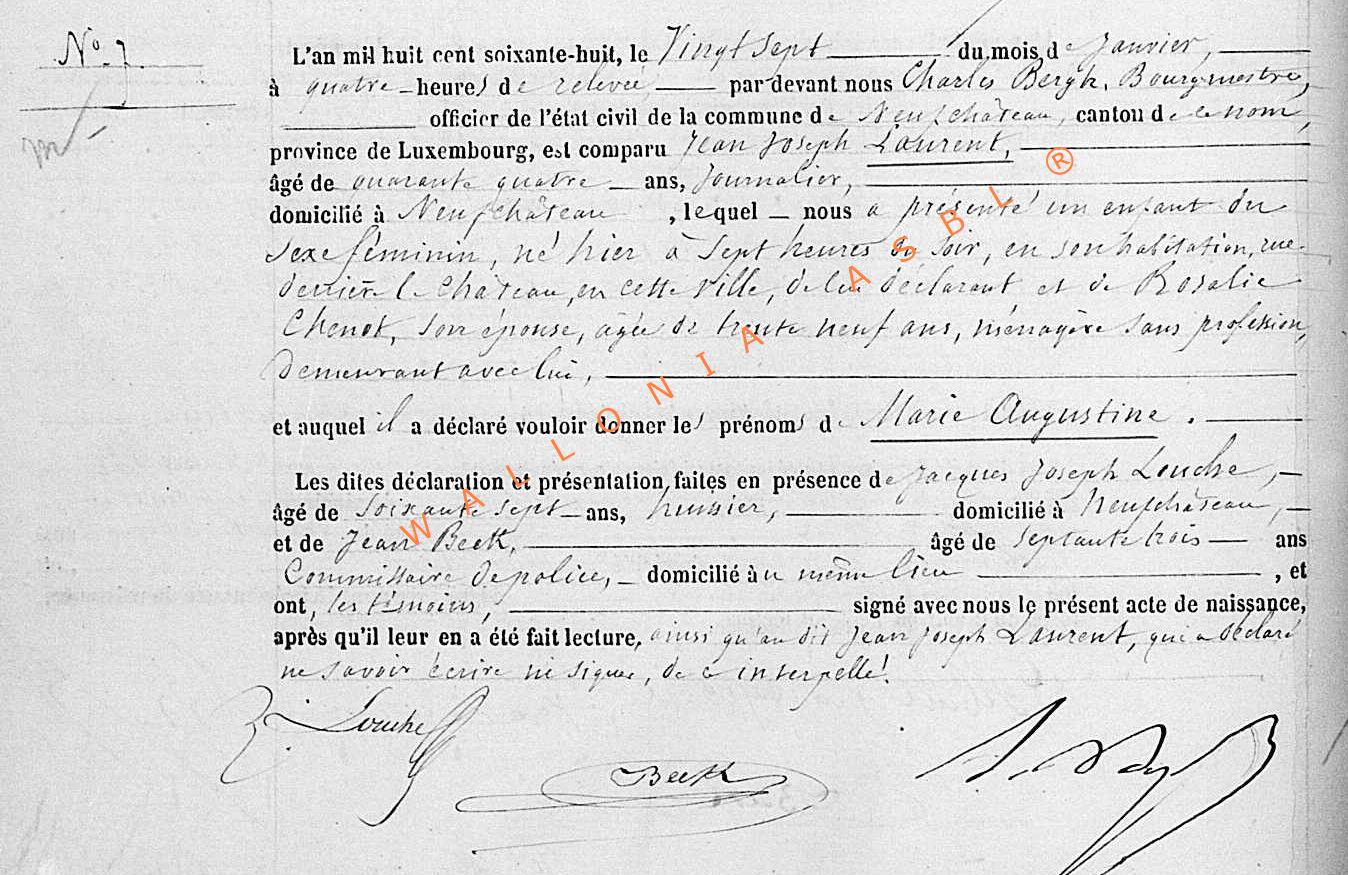 N° 7.
L'an mil huit cent soixante-huit, le Vingt Sept du mois de Janvier,
à quatre heures de relevée par devant nous Charles Bergh, Bourgmestre,
officier de l'état civil de la commune de Neufchâteau, canton de ce nom,
province de Luxembourg, est comparu Jean Joseph Laurent,
âgé de quarante quatre ans, Journalier,
domicilié à Neufchâteau, lequel nous a présenté un enfant du
sexe féminin, né hier à Sept heures du Soir, en son habitation, rue
derrière le Château, en cette Ville, de lui déclarant et de Rosalie
Chenot, son épouse, agée de trente neuf ans, ménagère sans profession,
demeurant avec lui,
et auquel il a déclaré vouloir donner les prénoms de Marie Augustine.
Les dites déclaration et présentation, faites en présence de Jacques Joseph Louche,
âgé de Soixante sept ans, huissier, domicilié à Neufchâteau,
et de Jean Beck, âgé de Septante trois ans
Commissaire de police, domicilié au même lieu, et
ont, les témoins, signé avec nous le présent acte de naissance,
après qu'il leur en a été fait lecture, ainsi qu'au dit Jean Joseph Laurent, qui a déclaré
ne savoir écrire ni signer, de ce interpellé.
Louche
Beck
WALLONIA ASBL ®